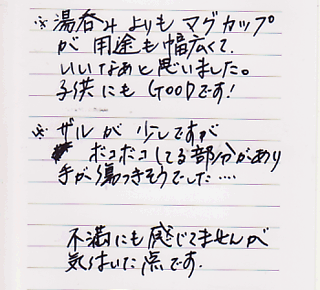 ※湯呑みよりもマグカップ
が用途も幅広くて、
いいなあと思いました。
子供にもGOODです!
※ザルが少しですが
ボコボコしてる部分があり
手が傷つきそうでした....
不満にも感じてませんが
気付いた点です.